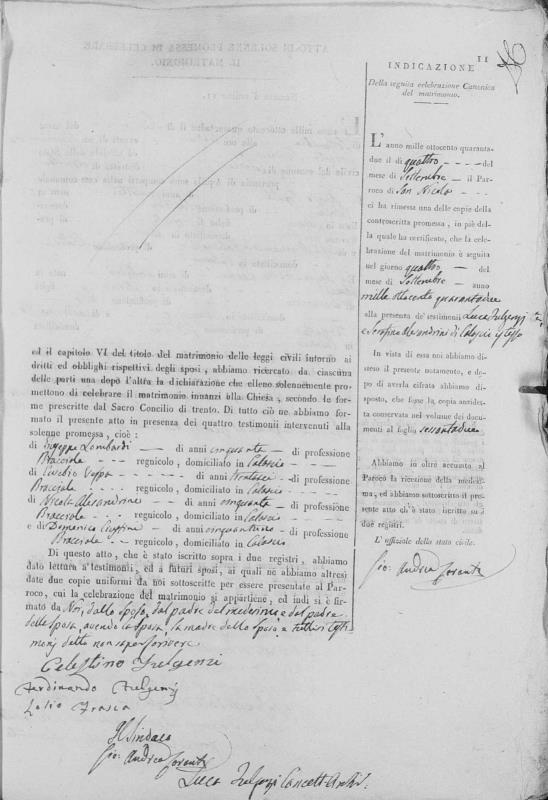 ed il capitolo VI del titolo del matrimonio delle leggi civili intorno ai
dritti ed obblighi rispettivi degli sposi, abbiamo ricercato da ciascuna
delle parti una dopo l'altra la dichiarazione che elleno solennemente pro-
mettono di celebrare il matrimonio innanzi alla Chiesa, secondo le for-
me prescritte dal Sacro Concilio di trento. Di tutto ciò ne abbiamo
formato il presente atto in presenza di quattro testimoni intervenuti alla
solenne promessa, cioè:
di Giuseppe Lombardi - di anni cinquanta - di professione
Bracciale - - - regnicolo, domiciliato in Calascio
di Eusebio - di anni trentasei - di professione
Bracciale - - - regnicolo, domiciliato in Calascio - -
di Nicola Alesandrini - di anni cinquanta - di professione
Bracciale - - - regnicolo, domiciliato in Calascio -
e di Domenico - di anni cinquantuno - di professione
Bracciale - - regnicolo, domiciliato in Calascio
Di questo atto, che è stato iscritto sopra i due registri, abbiamo
dato lettura a' testimoni, ed a futuri sposi, ai quali ne abbiamo altresì
date due copie uniformi da noi sottoscritte per essere presentate al Par-
roco, cui la celebrazione del matrimonio si appartiene, ed indi si è fir-
mato da Noi, dallo sposo, dal padre del medesimo e dal padre
della sposa, avendo la sposa, la madre dello sposo e tutti i testi-
monj detto non saper scrivere
Celestino Fulgenzi
Ferdinando Fulgenzj
Lelio Frasca
Il Sindaco
Gio: Andrea
Luca Fulgenzj Cancell. Archiv.
11
INDICAZIONE
Della seguita celebrazione Canonica
del matrimonio.
L'anno mille ottocento quaranta-
due il dì quattro - - - - del
mese di Settembre - il Par-
roco di San Nicola - - -
ci ha rimessa una delle copie della
controscritta promessa, in piè del-
la quale ha certificato, che la cele-
brazione del matrimonio è seguita
nel giorno quattro - del
mese di Settembre - anno
mille ottocento quarantadue
alla presenza de' testimoni Luca Fulgenzj
e Serafino Alesandrini di Calascio istesso
In vista di essa noi abbiamo di-
steso il presente notamento, e do-
po di averla cifrata abbiamo di-
sposto, che fosse la copia anzidet-
ta conservata nel volume dei docu-
menti al foglio sessantadue
Abbiamo in oltre accusato al
Paroco la ricezione della medesi-
ma, ed abbiamo sottoscritto il pre-
sente atto ch'è stato iscritto su i
due registri.
L'uffiziale dello stato civile.
Gio: Andrea